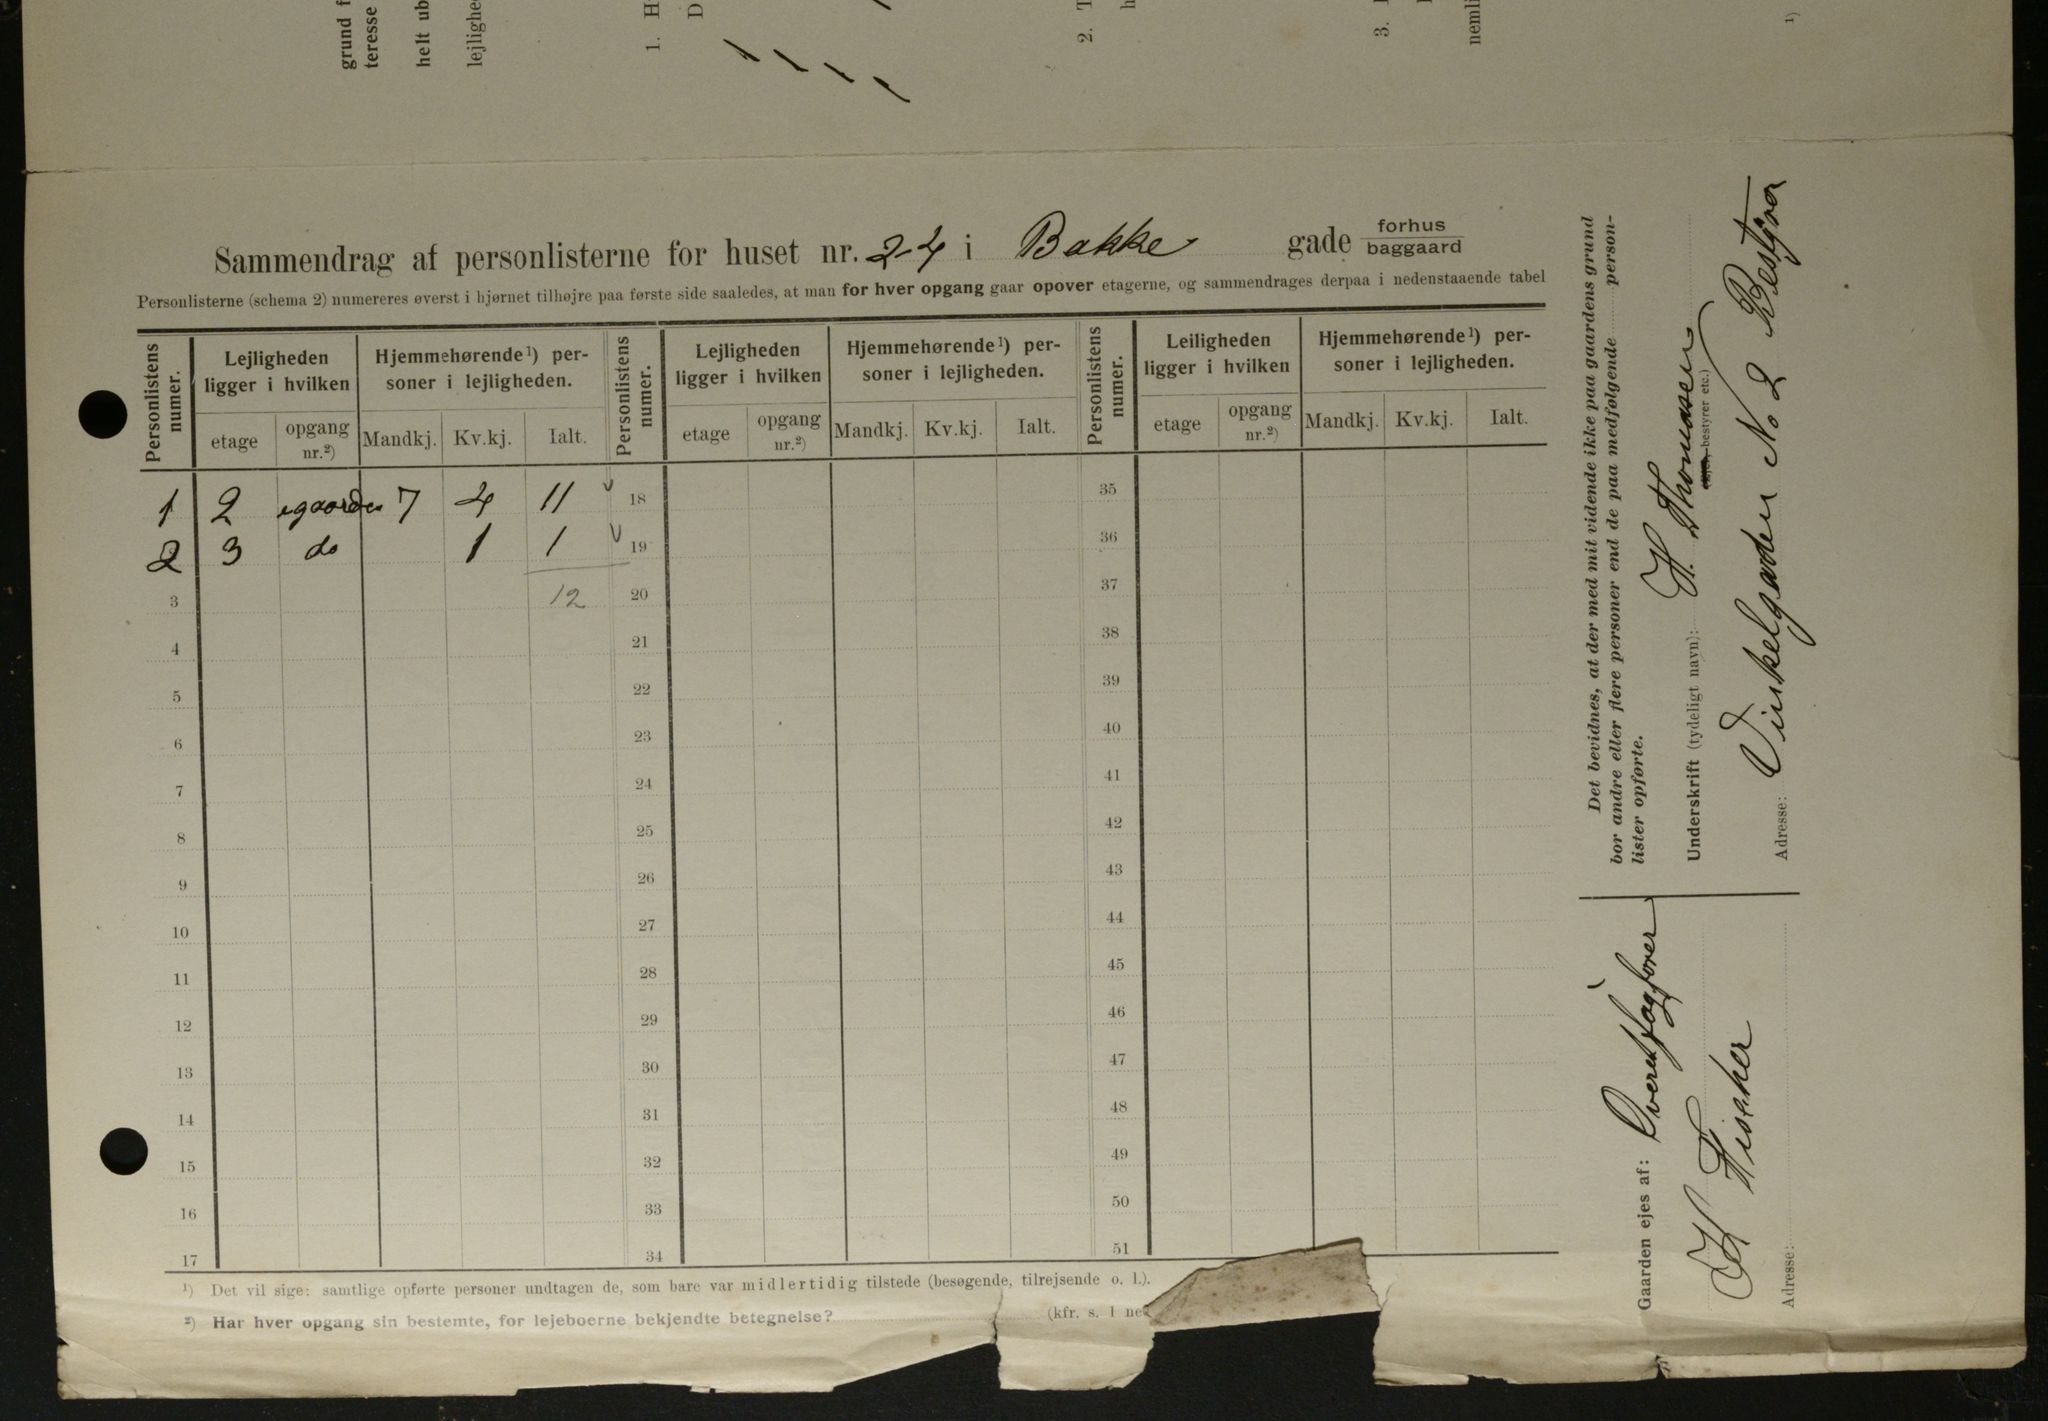 grund f
teresse
helt ub
lejlighe
1. H
D
2. T
h
3.
nemli
1)
Sammendrag af personlisterne for huset nr. 2-4 i Bakke gade forhus baggaard
Personlisterne (schema 2) numereres øverst i hjørnet tilhøjre paa første side saaledes, at man for hver opgang gaar opover etagerne, og sammendrages derpaa i nedenstaaende tabel
Personlistens numer. Lejligheden ligger i hvilken Hjemmehørende1) personer i lejligheden. Personlistens numer. Lejligheden ligger i hvilken Hjemmehørende1) personer i lejligheden. Personlistens numer. Leiligheden ligger i hvilken Hjemmehørende1) personer i lejligheden.
etage opgang nr.2) Mandkj. Kv.kj. Ialt. etage opgang nr.2) Mandkj. Kv.kj. Ialt. etage opgang nr.2) Mandkj. Kv.kj. Ialt.
1 2 igaarden 7 4 11 18 35
2 3 do 1 1 19 36
3 12 20 37
4 21 38
5 22 39
6 23 40
7 24 41
8 25 42
9 26 43
10 27 44
11 28 45
12 29 46
13 30 47
14 31 48
15 32 49
16 33 50
17 34 51
1) Det vil sige: samtlige opførte personer undtagen de, som bare var midlertidig tilstede (besøgende, tilrejsende o. l.).
2) Har hver opgang sin bestemte, for lejeboerne bekjendte betegnelse? (kfr. s. 1 ne
Det bevidnes, at der med mit vidende ikke paa gaardens grund
bor andre eller flere personer end de paa medfølgende person-
lister opførte.
Underskrift (tydeligt navn): H. Thomasen
bestyrer etc.)
Adresse: Vinkelgaden No 2 Bestyrer
Gaarden ejes af: Overretsagfører
H Fischer
Adresse: